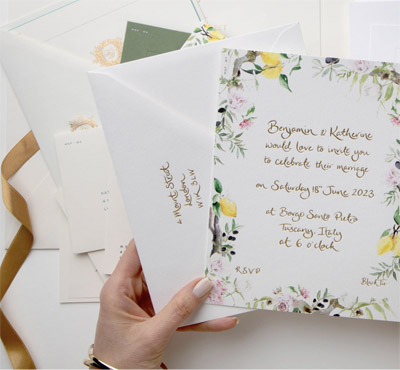 Benjamin & Katherine
would love to invite you
to celebrate their marriage
on Saturday 18th June 2023
at Borgo Santo Pietro
Tuscany, Italy
at 6 o'clock
RSVP
Black Tie
6 Mount Street
London
W1K 2LW